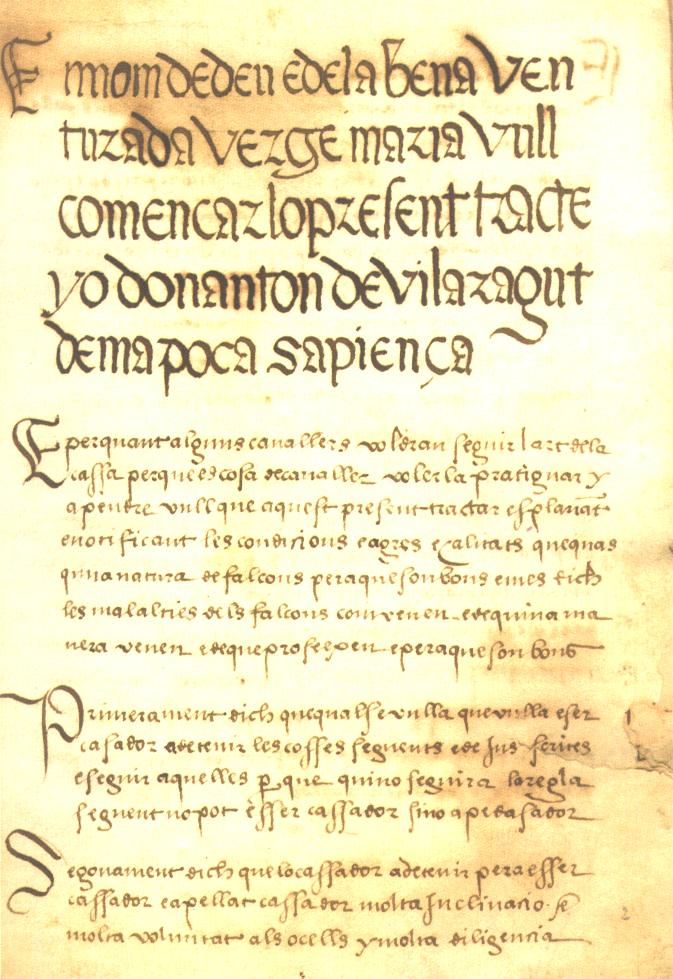 E nnom de deu e dela bena ven
turada verge maria vull
comencar lo present tracte
yo don anton de vilaragut
de ma poca sapiença
E per quant alguns cavallers voldran seguir lart dela
cassa per que es cosa de cavaller voler la pratiguar y
apendre vull que aquest present tractar esplanat
e notificant les condicions e agres e qalitats que quas
quna natura de falcons pera que son bons e mes dich
les malalties dels falcons con venen e de quina ma
nera venen e de que proseexen e pera que son bons
Primerament dich que qualsevulla que vulla eser
casador a de tenir les cosses seguents e de jus scrites
e seguir aquelles per que qui no seguira la regla
seguent no pot esser cassador sino apedasador
1
Segonament dich que lo cassador a de tenir pera esser
cassador e apellat cassador molta Inclinacio
molta voluntat als ocells y molta diligencia
2